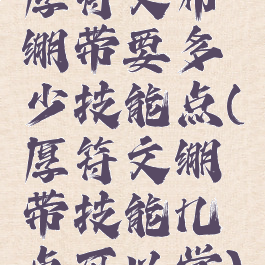 厚符文布
绷带要多
少技能点(
厚符文绷
带技能几
点可以学)